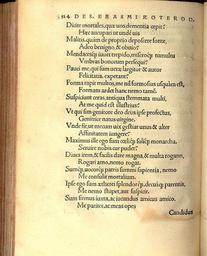 114 DES. ERASMI ROTERO D.
Dicite mortales, quæ vos dementia cepit?
Hæc aucupari ut undè uis
Malitis, quàm de proprio deposcere fonte,
Adeo benigno, & obuio?
Mendacesque iuuet trepido, miseroque tumultu
Vmbras bonorum persequi?
Pauci me, qui sum uerę largitor & autor
Felicitatis, expetant?
Forma rapit multos, me nil formosius usquam est,
Formam ardet hanc nemo tamen.
Suspiciunt ceras, antiqua stemmata multi,
At me quid est illustrius?
Vt qui sim genitore deo deus ipse profectus,
Genitrice natus uirgine.
Vnde fit, ut mecum uix gestiat unus & alter
Affinitatem iungere?
Maximus ille ego sum cœlique solique monarcha,
Seruire nobis cur pudet?
Diues item, & facilis dare magna, & multa rogatus,
Rogari amo, nemo rogat.
Sumque uocorque patris summi sapientia, nemo
Me consulit mortalium.
Ipse ego sum ætherei splendorque decusque parentis,
Me nemo stupet, aut suspicit.
Sum firmus iuxta, ac iucundus amicus amico,
Me pariter, ac meas opes
Candidus